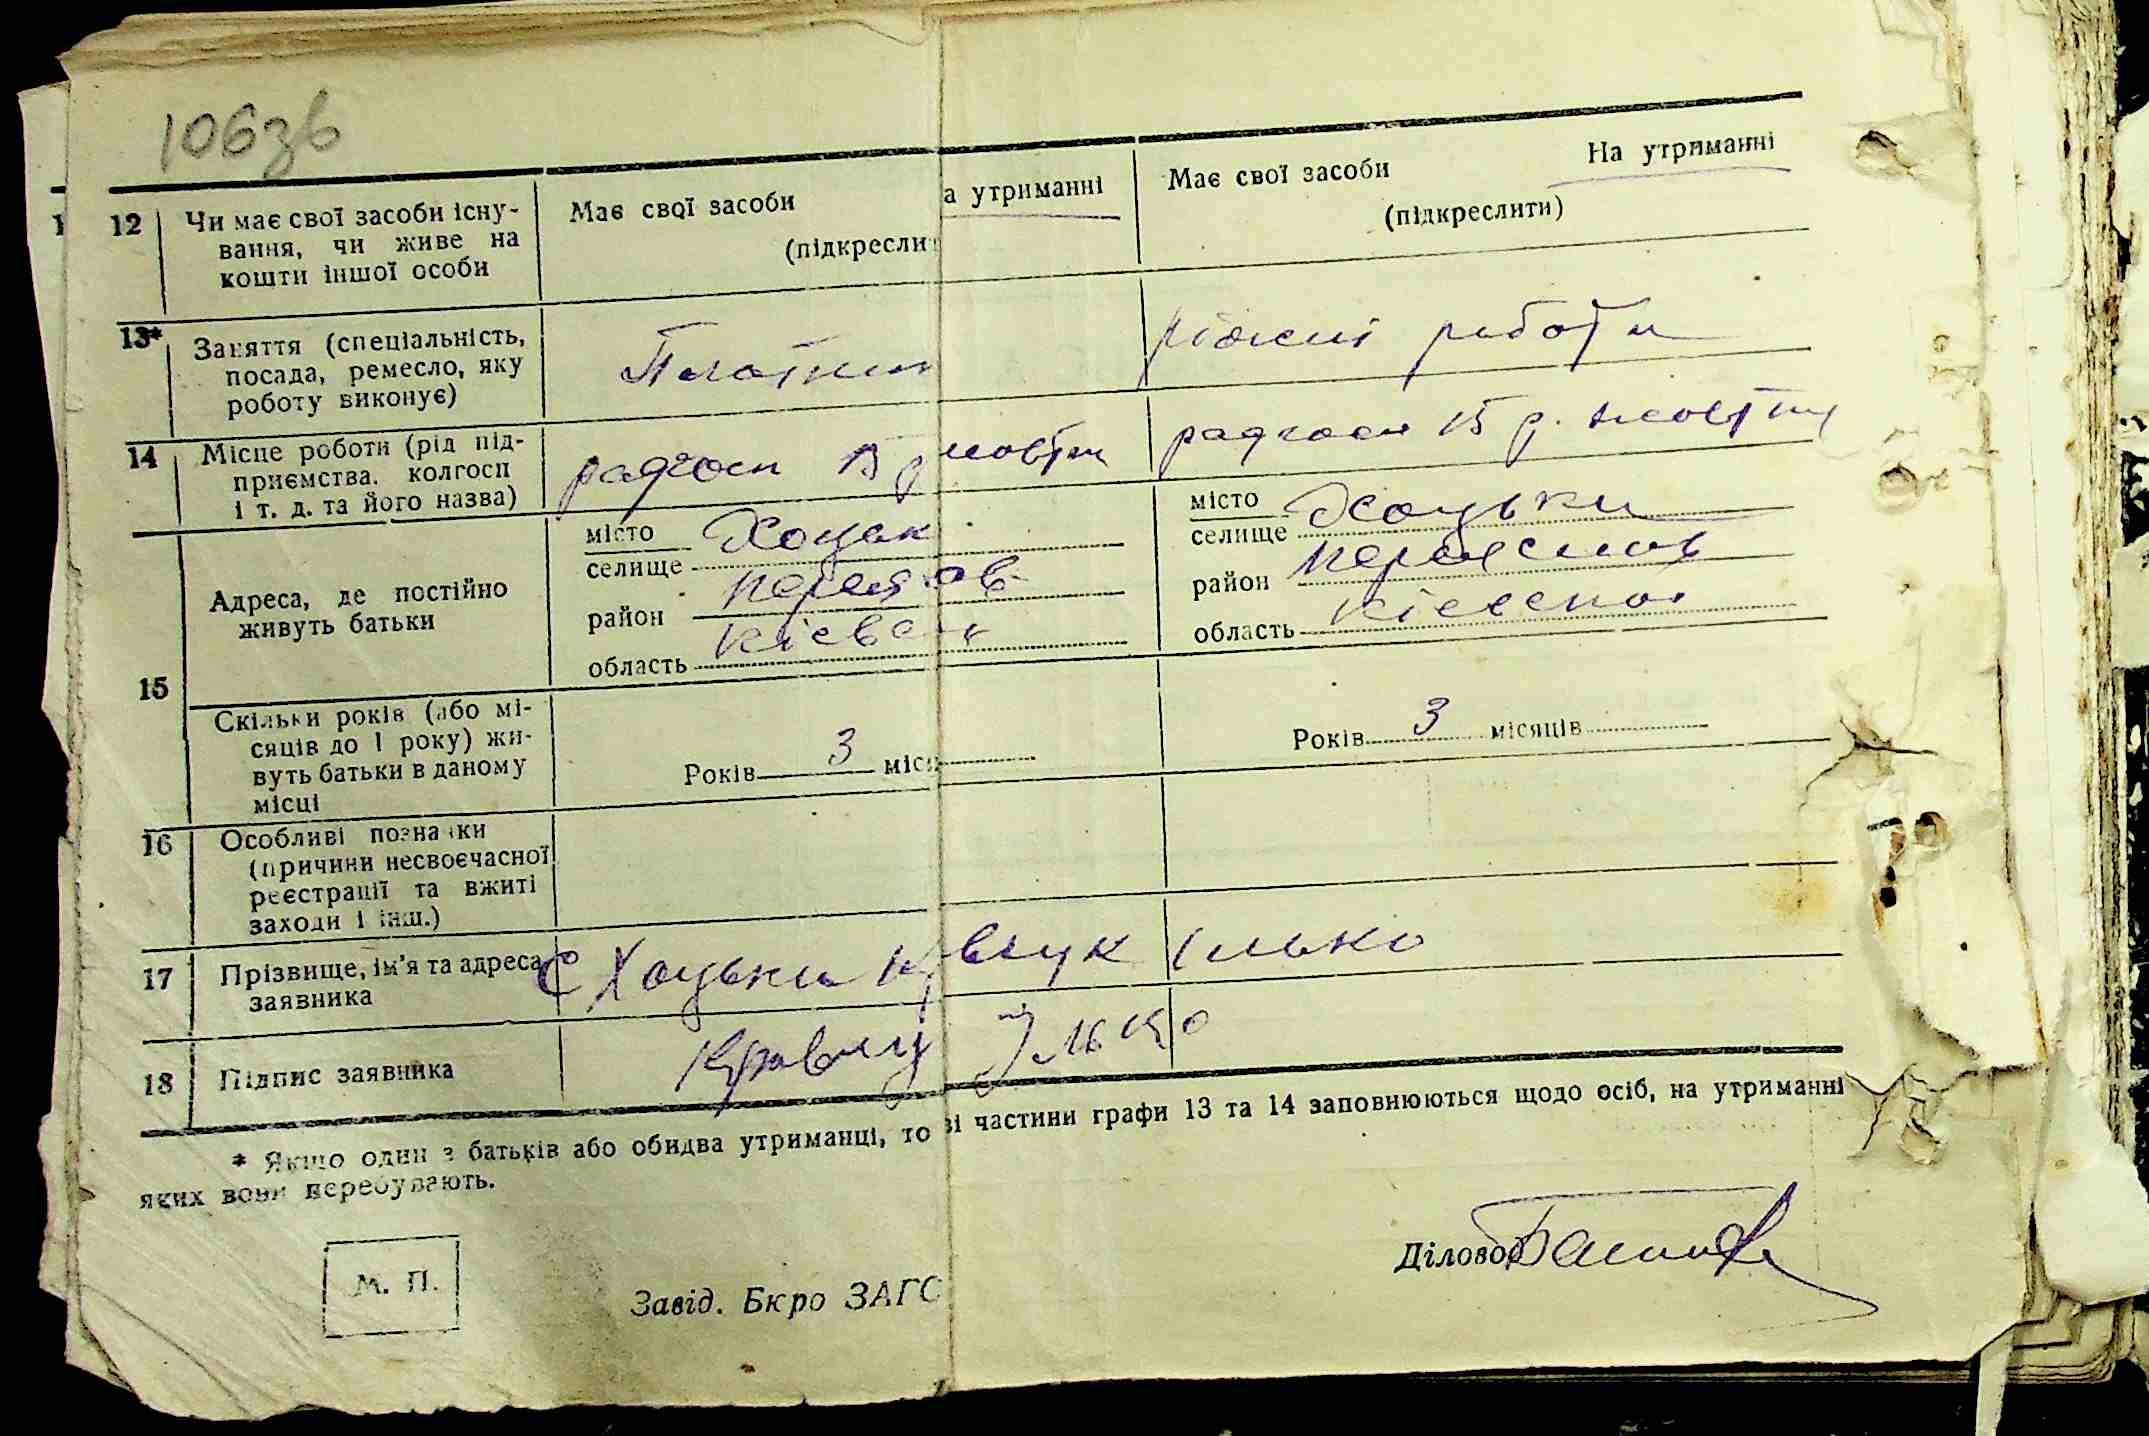 106зв
12 Чи має свої засоби існу- Має свої засоби а утриманні Має свої засоби На утриманні
вання, чи живе на (підкресли (підкреслити)
кошти іншої особи
13* Заняття (спеціальність, Плотник різні роботи
посада, ремесло, яку
роботу виконує)
14 Місце роботи (рід під- радгосп 15 р жовтн радгосп 15 р. жовтня
приємства, колгосп
і т. д. та його назва)
15 Адреса, де постійно місто Хоцьк місто Хоцьки
живуть батьки селище селище
район район Переяслав
область Києвс область Києвська
Скільки років (або мі- Років 3 міся Років 3 місяців
сяців до 1 року) жи-
вуть батьки в даному
місці
16 Особливі познаки
(причини несвоєчасної
реєстрації та вжиті
заходи і інш.)
17 Прізвище, ім'я та адреса с Хоцьки К влук Ілько
заявника
18 Підпис заявника Ілько
* Якщо один з батьків або обидва утриманці, то ві частини графи 13 та 14 заповнюються щодо осіб, на утриманні
яких вони перебувають.
М. П.
Завід. Бюро ЗАГС
Діловод